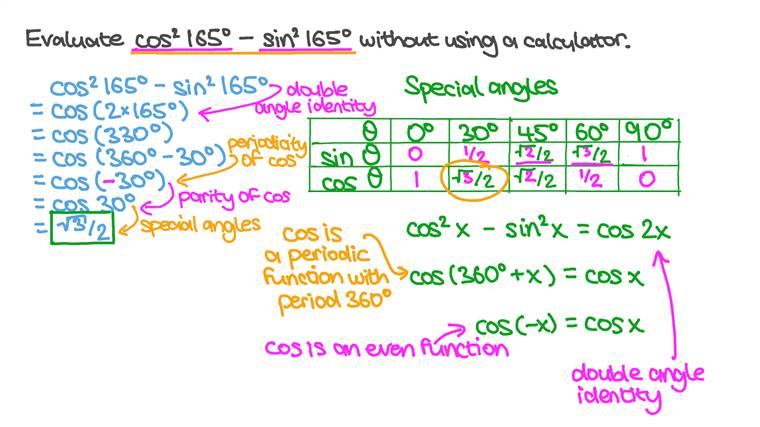 Evaluate cos² 165° − sin² 165° without using a calculator.
cos² 165° − sin² 165°
= cos (2×165°)
= cos (330°)
= cos (360° − 30°)
= cos (−30°)
= cos 30°
= √3/2
double angle identity
periodicity of cos
parity of cos
special angles
Special angles
θ 0° 30° 45° 60° 90°
sin θ 0 1/2 √2/2 √3/2 1
cos θ 1 √3/2 √2/2 1/2 0
cos² x − sin² x = cos 2x
cos is
a periodic
function with
period 360°
cos (360° + x) = cos x
cos (−x) = cos x
cos is an even function
double angle
identity